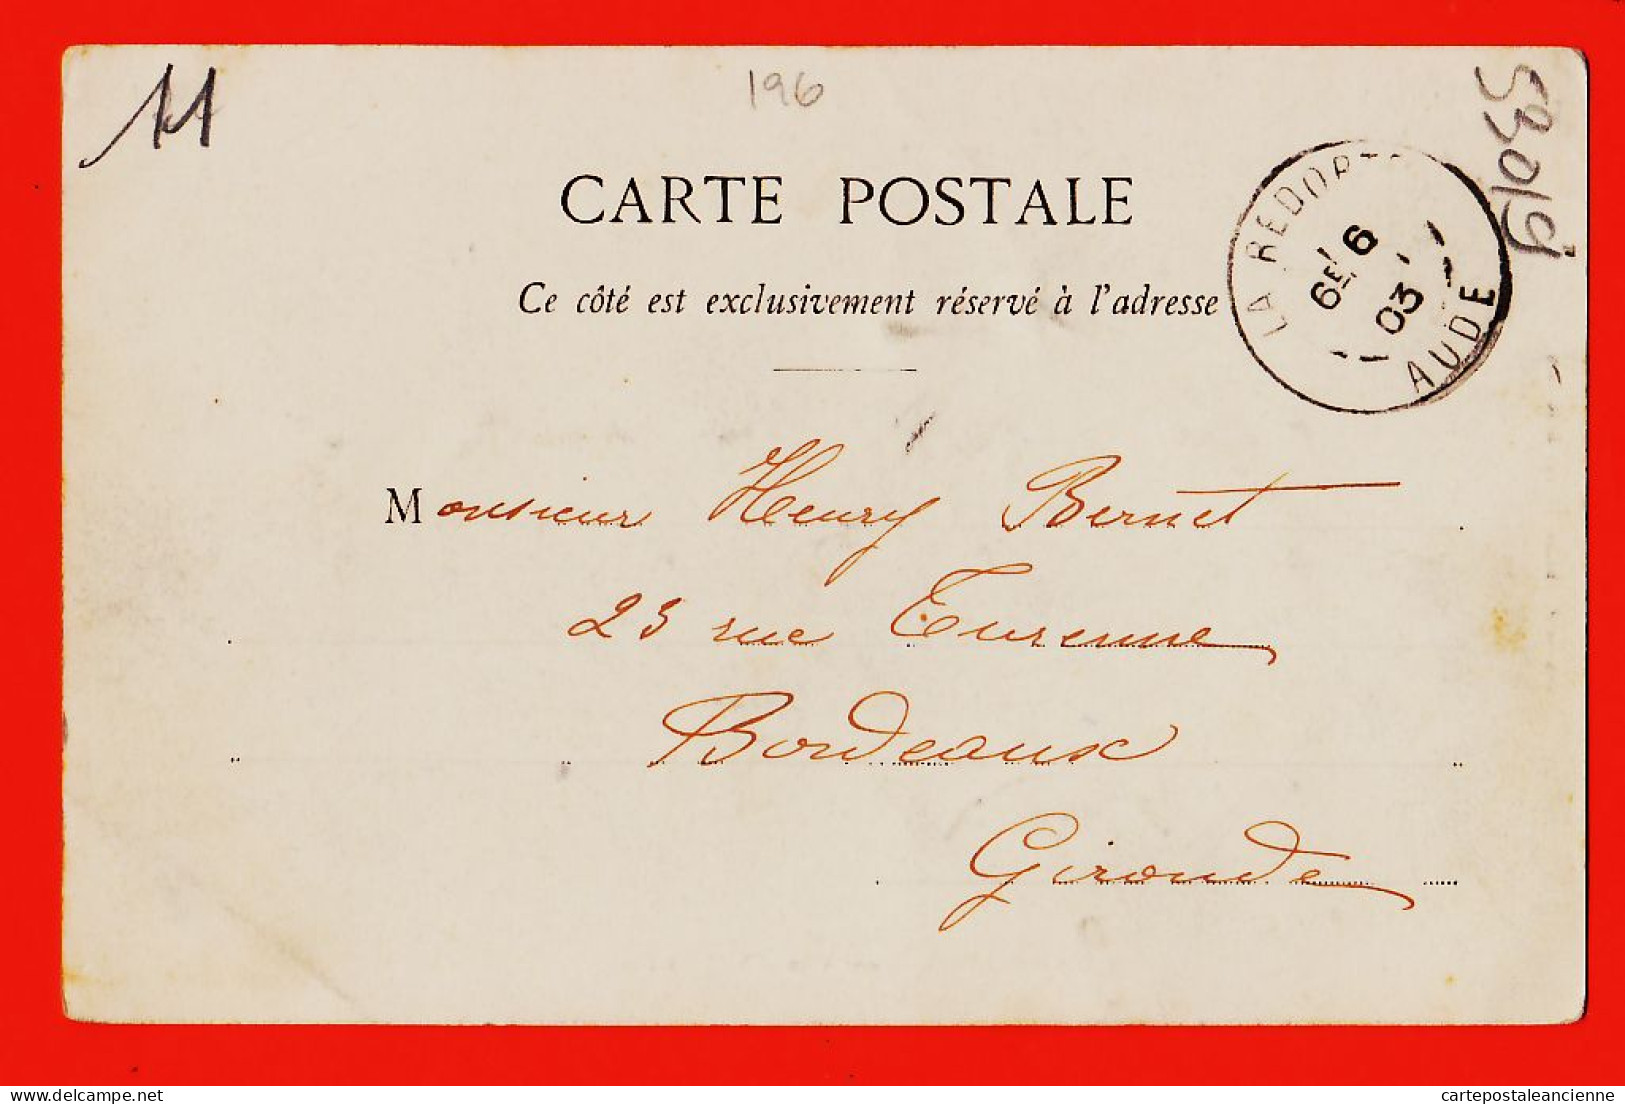 11
196
CARTE POSTALE
Ce côté est exclusivement réservé à l'adresse
LA REDORT
6E 6
03
AUDE
Monsieur Henry Bernet
23 rue Turenne
Bordeaux
Gironde
delcampe.net
cartepostaleancienne